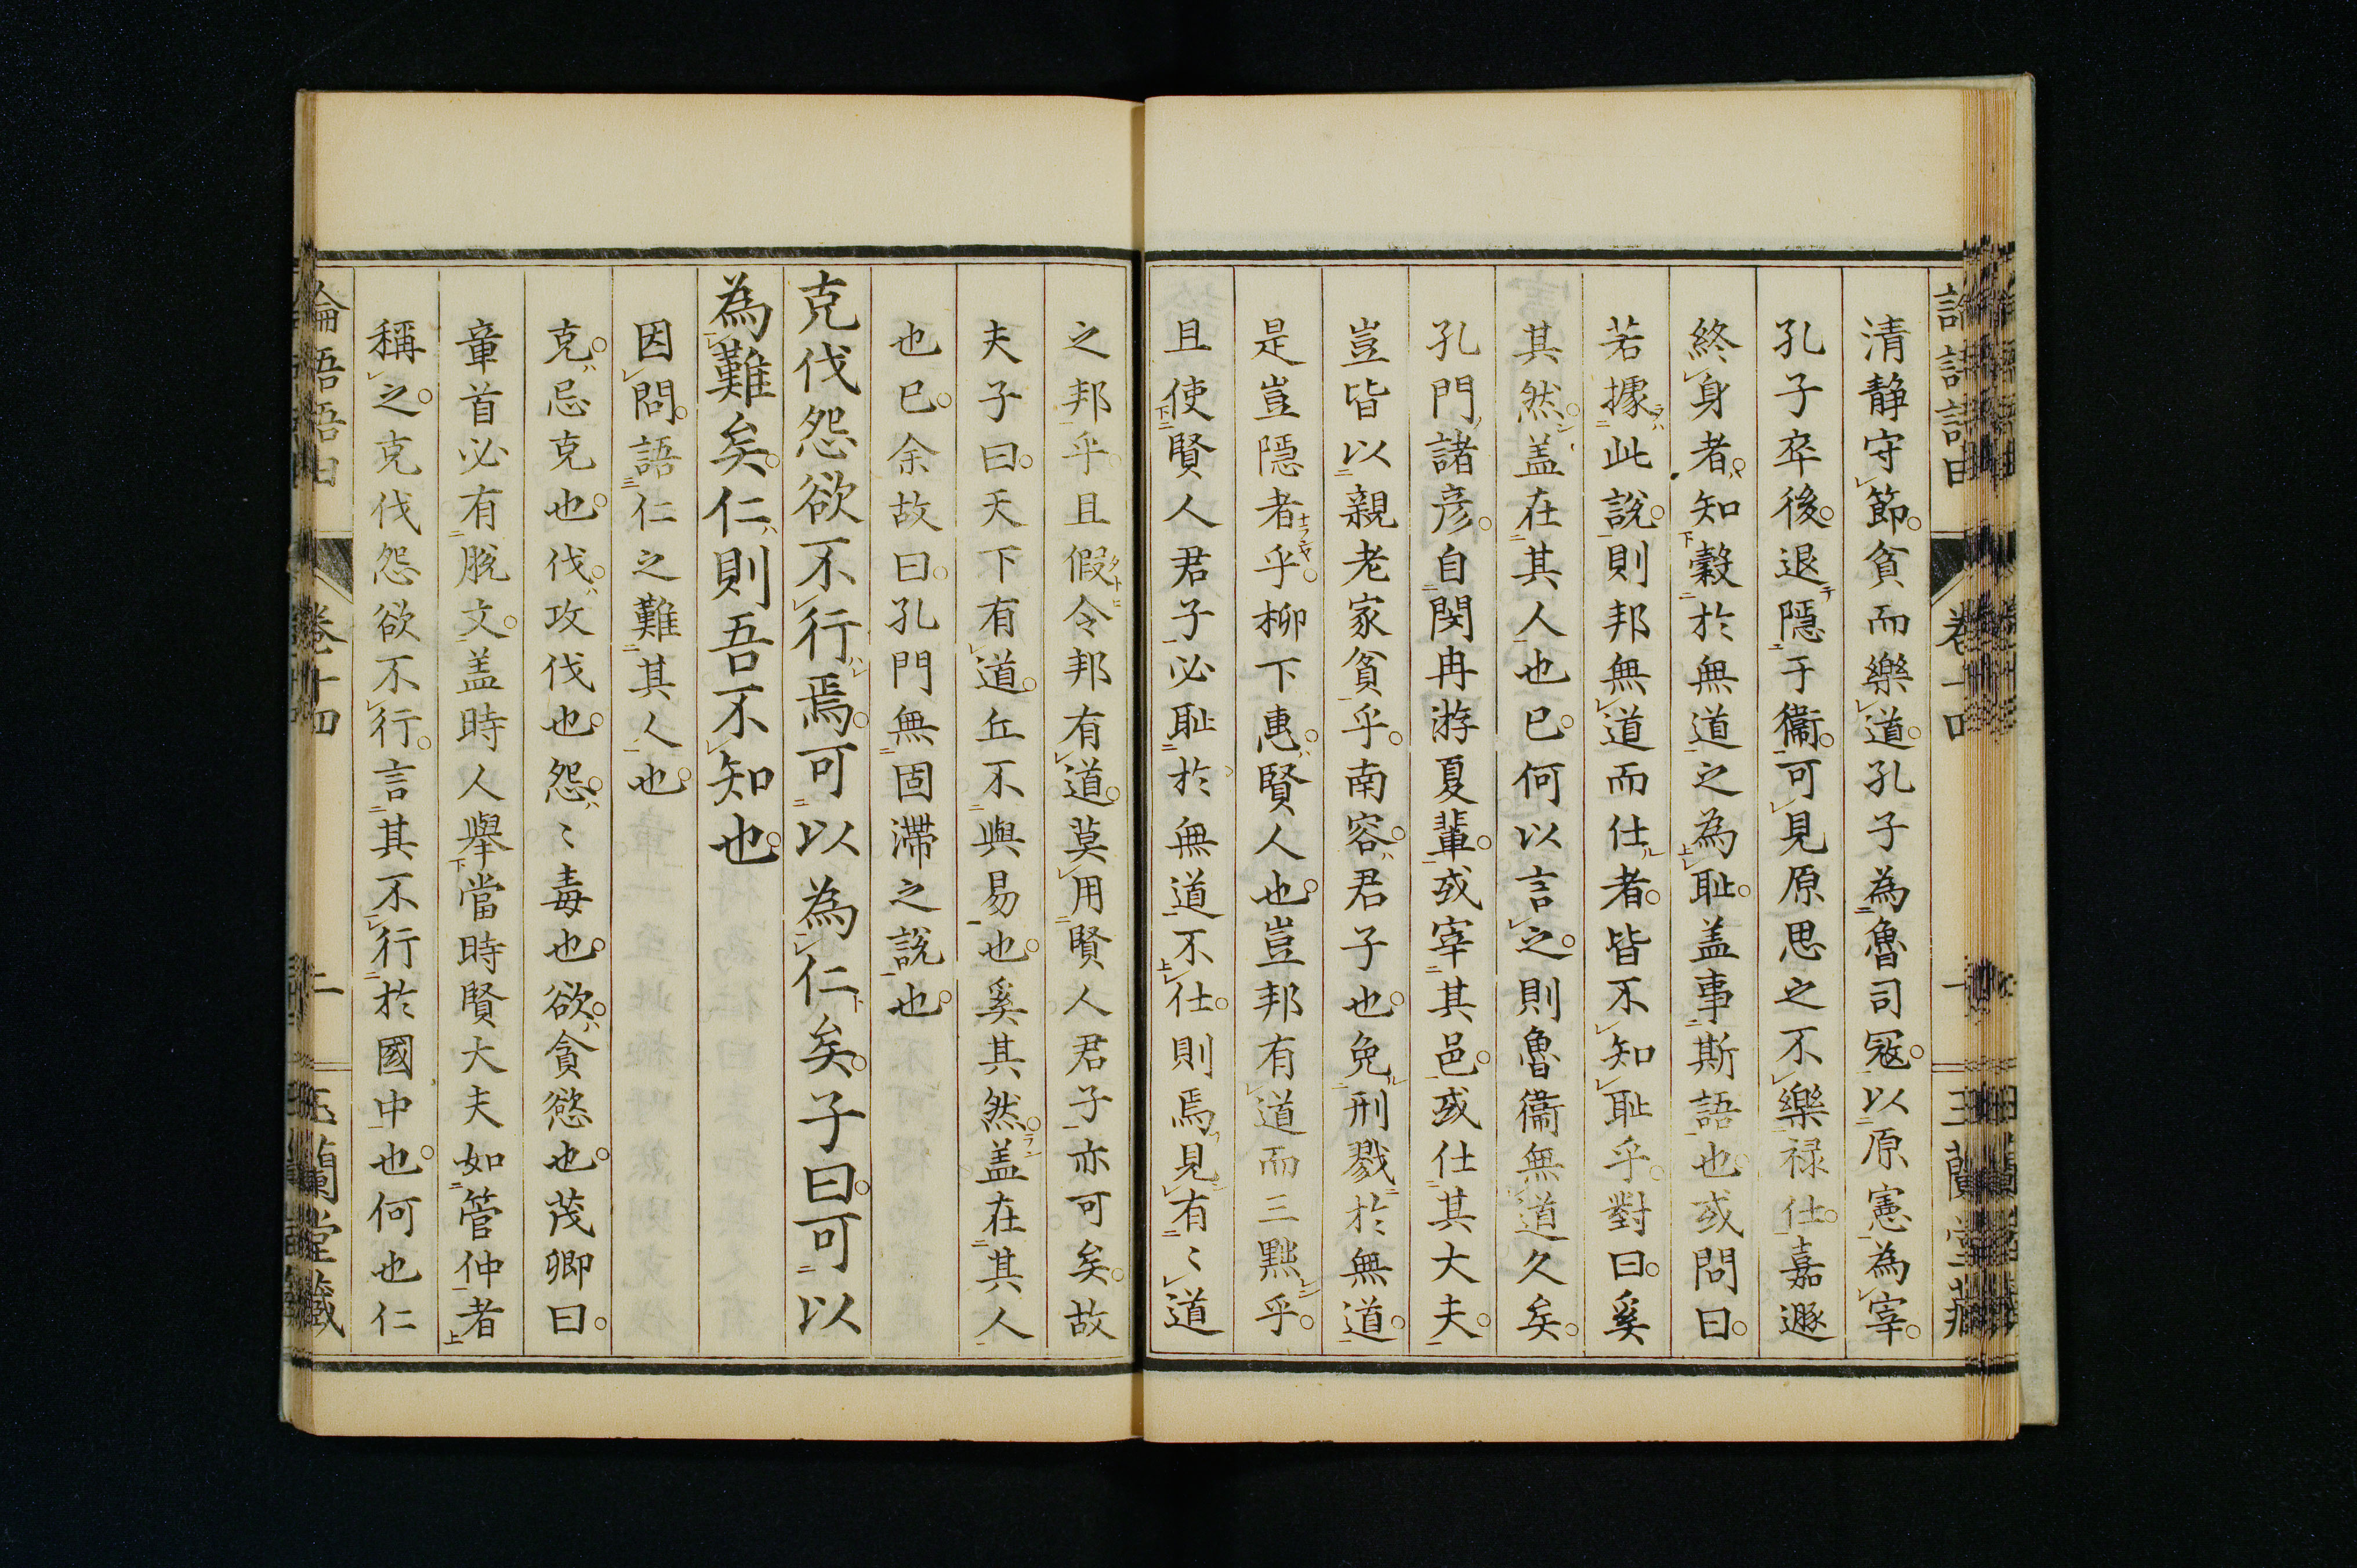 清静守節。貧而樂道。孔子為魯司冦。以原憲為宰。
孔子卒後。退隱于衞。可見原思之不樂禄仕。嘉遯
終身者。知糓於無道之為耻。盖事斯語也。或問曰。
若據此說。則邦無道而仕者。皆不知耻乎。對曰。奚
其然。盖在其人也已。何以言之。則魯衞無道久矣。
孔門諸彦。自閔冉游夏輩。或宰其邑。或仕其大夫。
豈皆以親老家貧乎。南容。君子也。免刑戮於無道。
是豈隱者乎。柳下惠。賢人也。豈邦有道而三黙乎。
且使賢人君子必耻於無道不仕。則焉見有〻道
之邦乎。且假令邦有道。莫用賢人君子亦可矣。故
夫子曰。天下有道。丘不與易也。奚其然。盖在其人
也已。余故曰。孔門無固滯之說也。
克伐怨欲不行焉。可以為仁矣。子曰。可以
為難矣。仁則吾不知也。
因問。語仁之難其人也。
克。忌克也。伐。攻伐也。怨。〻毒也。欲。貪慾也。茂卿曰。
章首必有脫文。盖時人舉當時賢大夫如管仲者
稱之。克伐怨欲不行。言其不行於國中也。何也仁
卷十四